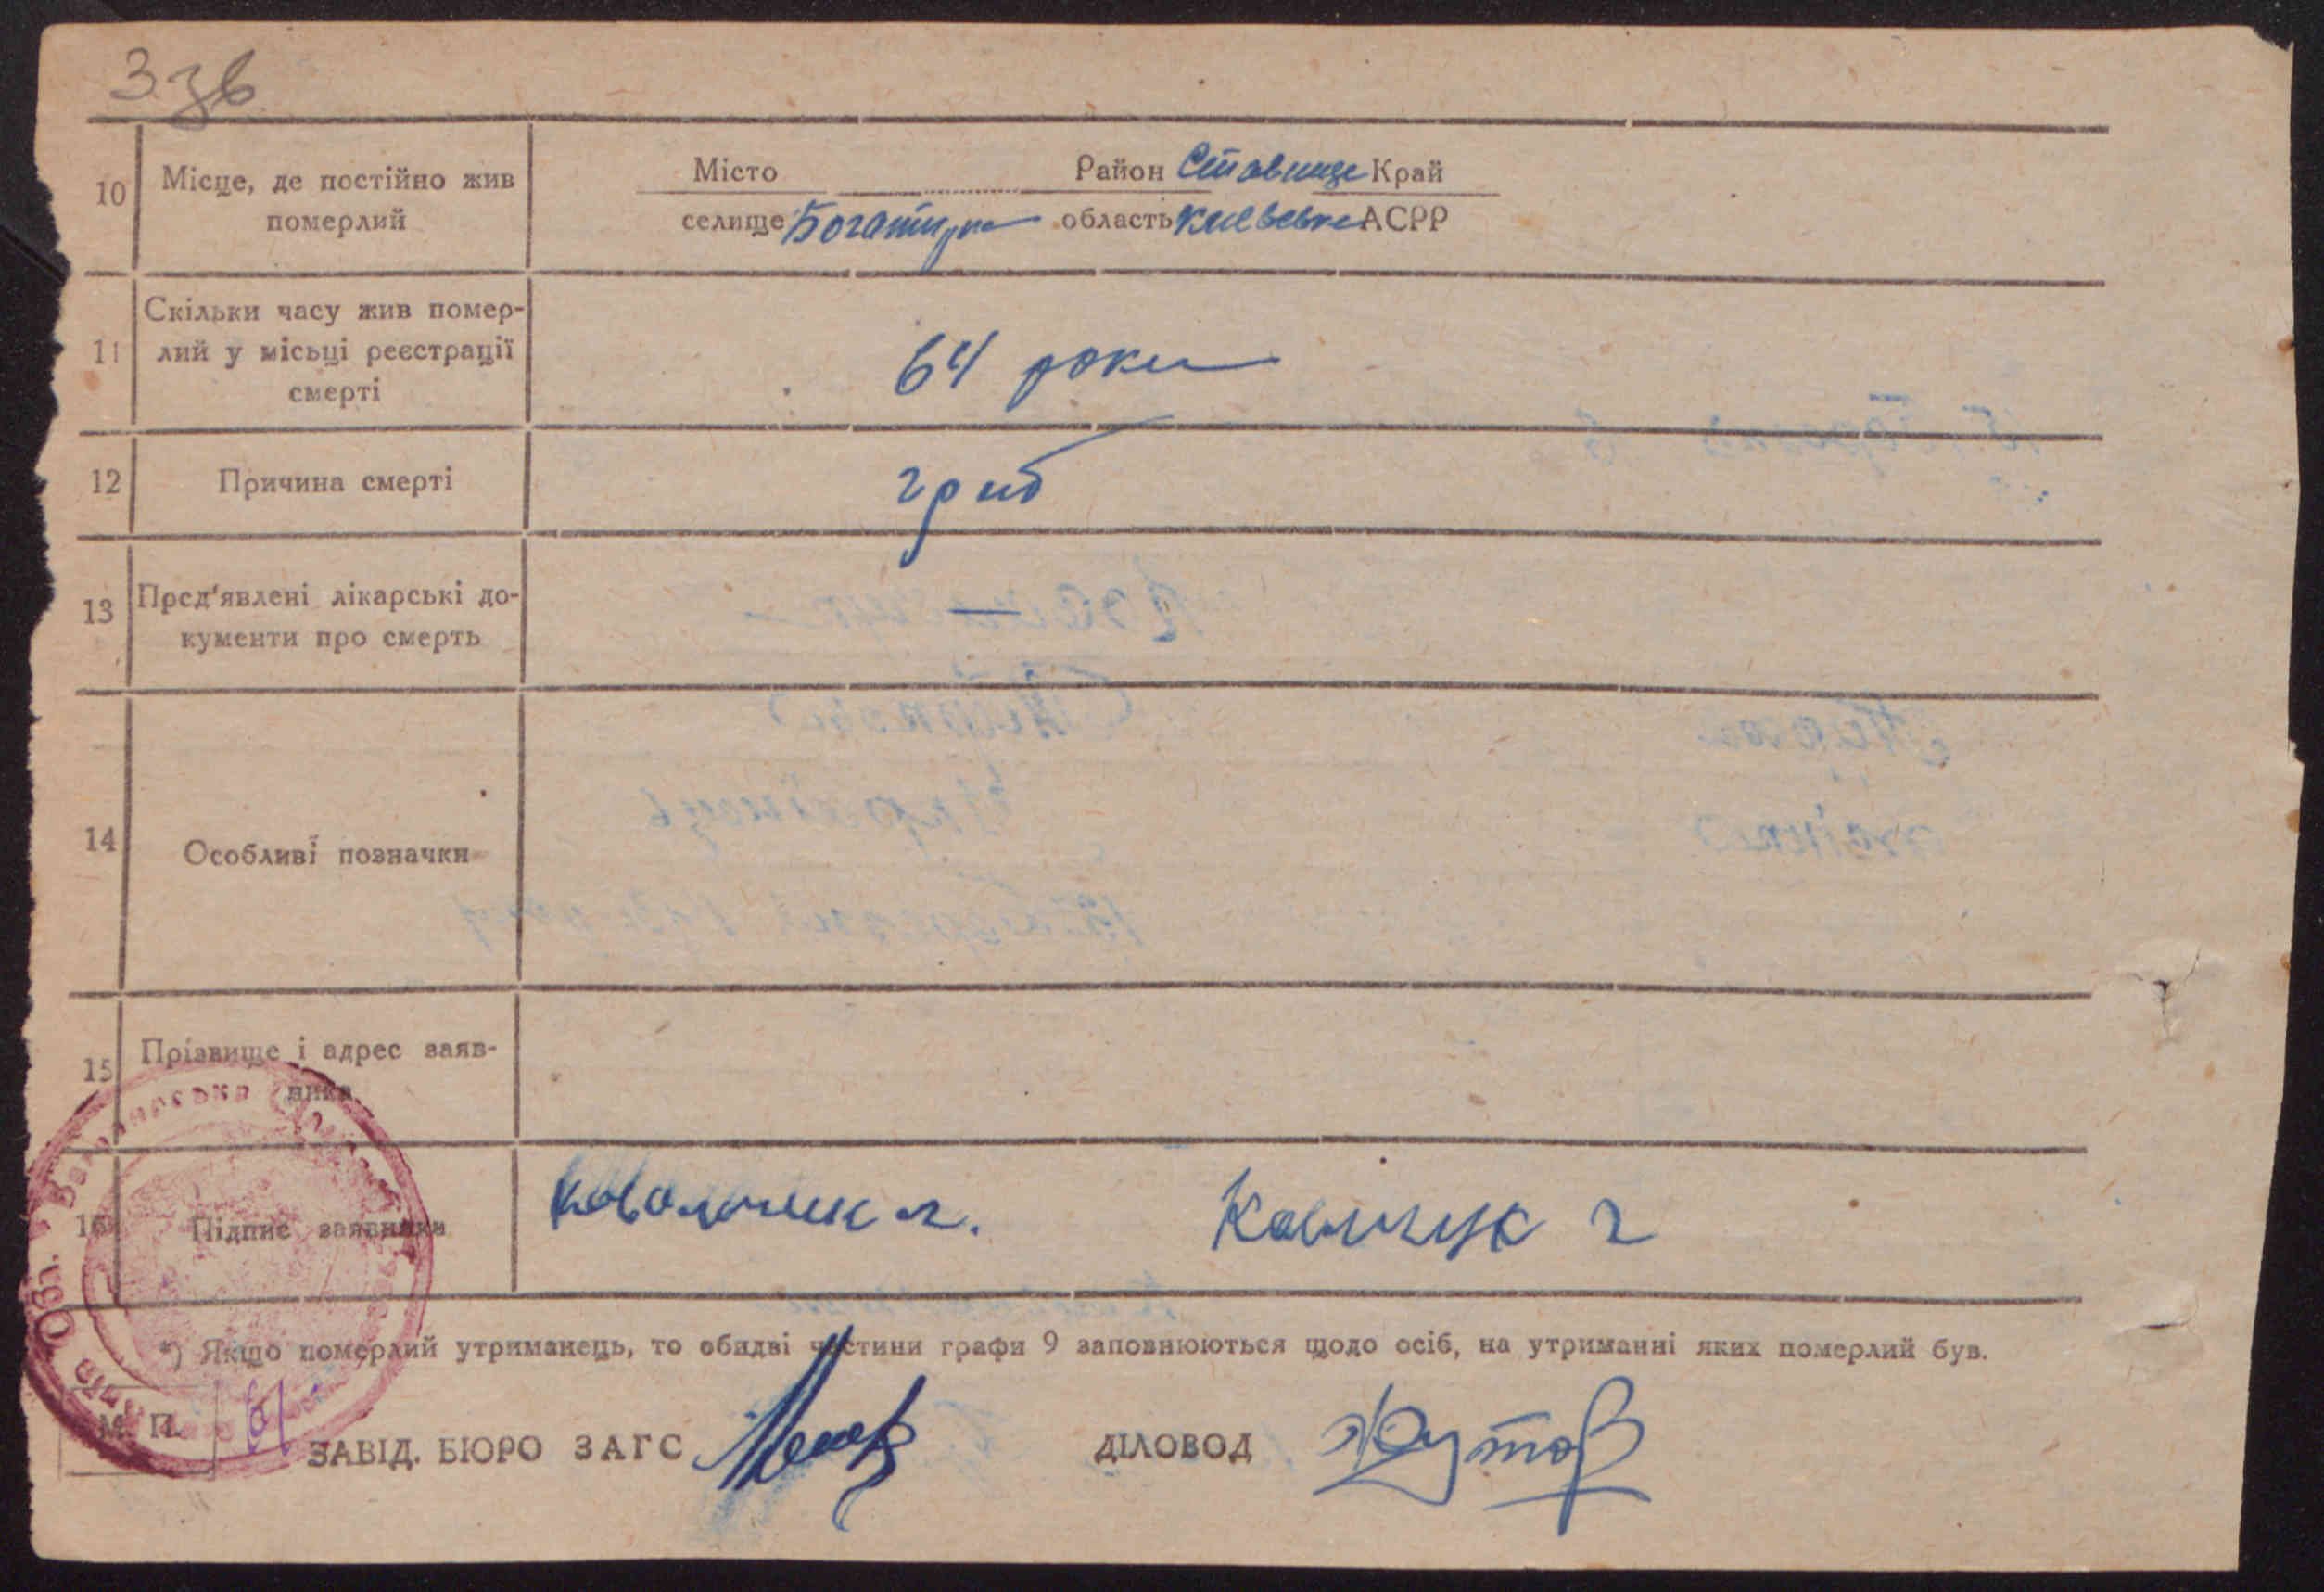 3 зв
10 Місце, де постійно жив померлий
Місто Район Ставище Край
селище Богатирка область Київська АСРР
11 Скільки часу жив помер-
лий у місьці реєстрації
смерті
64 роки
12 Причина смерті
гриб
13 Пред'явлені лікарські до-
кументи про смерть
14 Особливі позначки
15 Прізвище і адрес заяв-
ника
16 Підпис заявника
Ковальчук г.
Ковлчук г
*) Якщо померлий утриманець, то обидві частини графи 9 заповнюються щодо осіб, на утриманні яких померлий був.
М. П.
ЗАВІД. БЮРО ЗАГС
ДІЛОВОД